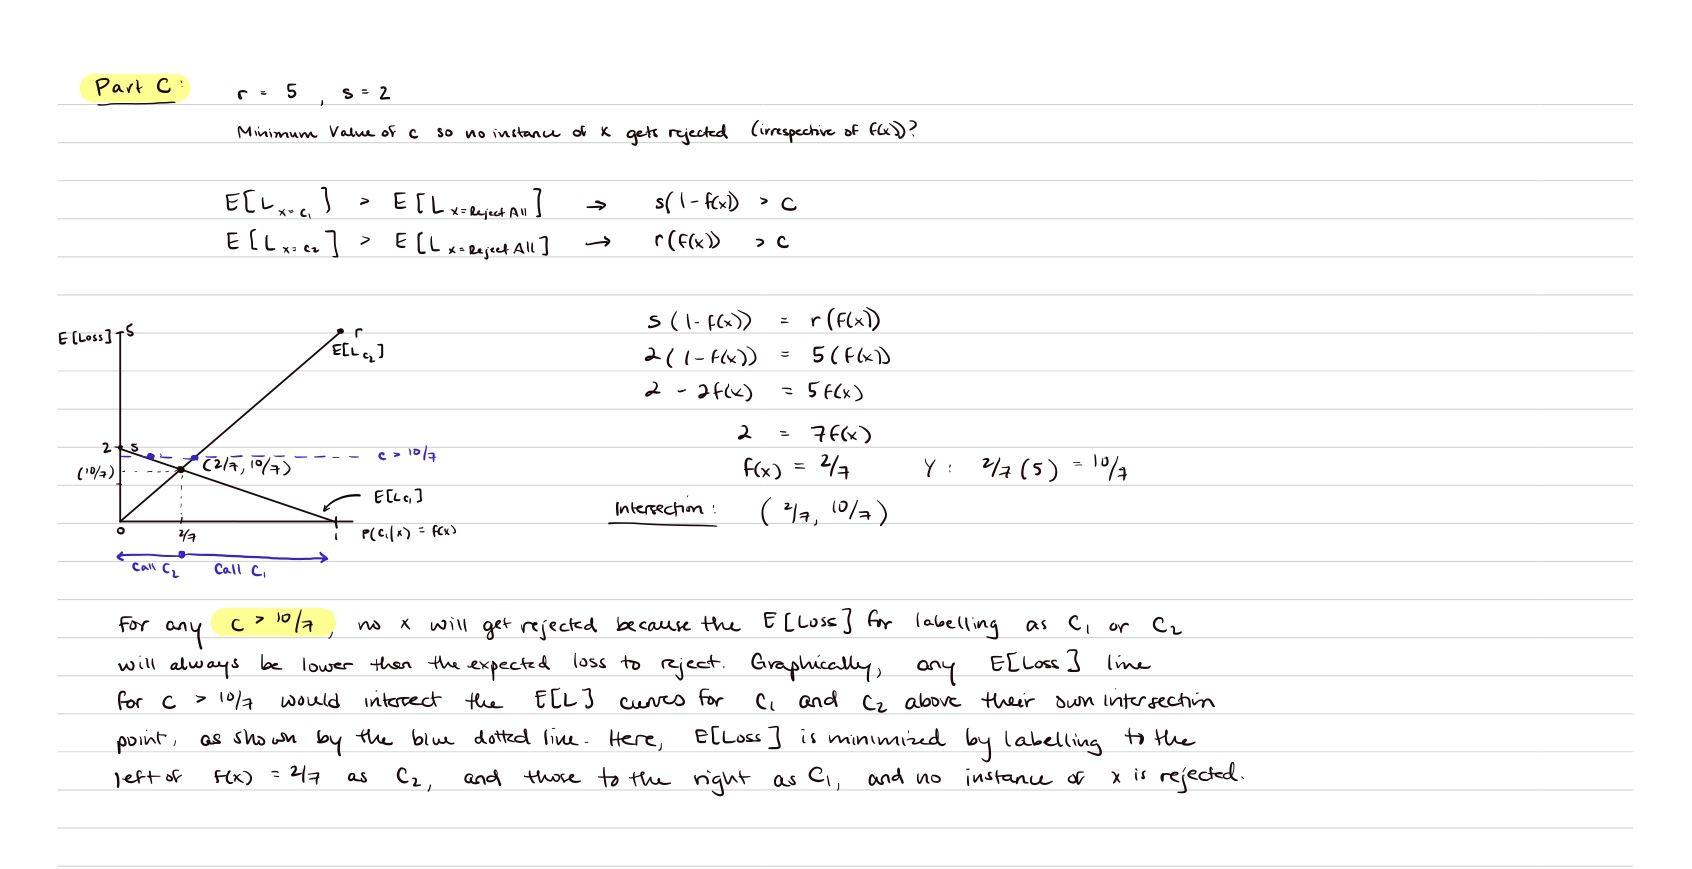 Part C:
r = 5 , s = 2
Minimum Value of c so no instance of x gets rejected (irrespective of f(x))?
E[L x=C₁] > E[L x=Reject All] → s(1-f(x)) > C
E[L x=C2] > E[L x=Reject All] → r(f(x)) > C
s(1-f(x)) = r(f(x))
2(1-f(x)) = 5(f(x))
2 - 2f(x) = 5f(x)
2 = 7f(x)
f(x) = 2/7 Y: 2/7(5) = 10/7
Intersection: (2/7, 10/7)
E[Loss]
5
r
E[L C2]
2
s
c > 10/7
(10/7)
(2/7, 10/7)
E[L C₁]
0
2/7
1
P(C₁|x) = f(x)
Call C₂
Call C₁
For any c > 10/7, no x will get rejected because the E[Loss] for labelling as C₁ or C₂
will always be lower than the expected loss to reject. Graphically, any E[Loss] line
for c > 10/7 would intersect the E[L] curves for C₁ and C₂ above their own intersection
point, as shown by the blue dotted line. Here, E[Loss] is minimized by labelling to the
left of f(x) = 2/7 as C₂, and those to the right as C₁, and no instance of x is rejected.